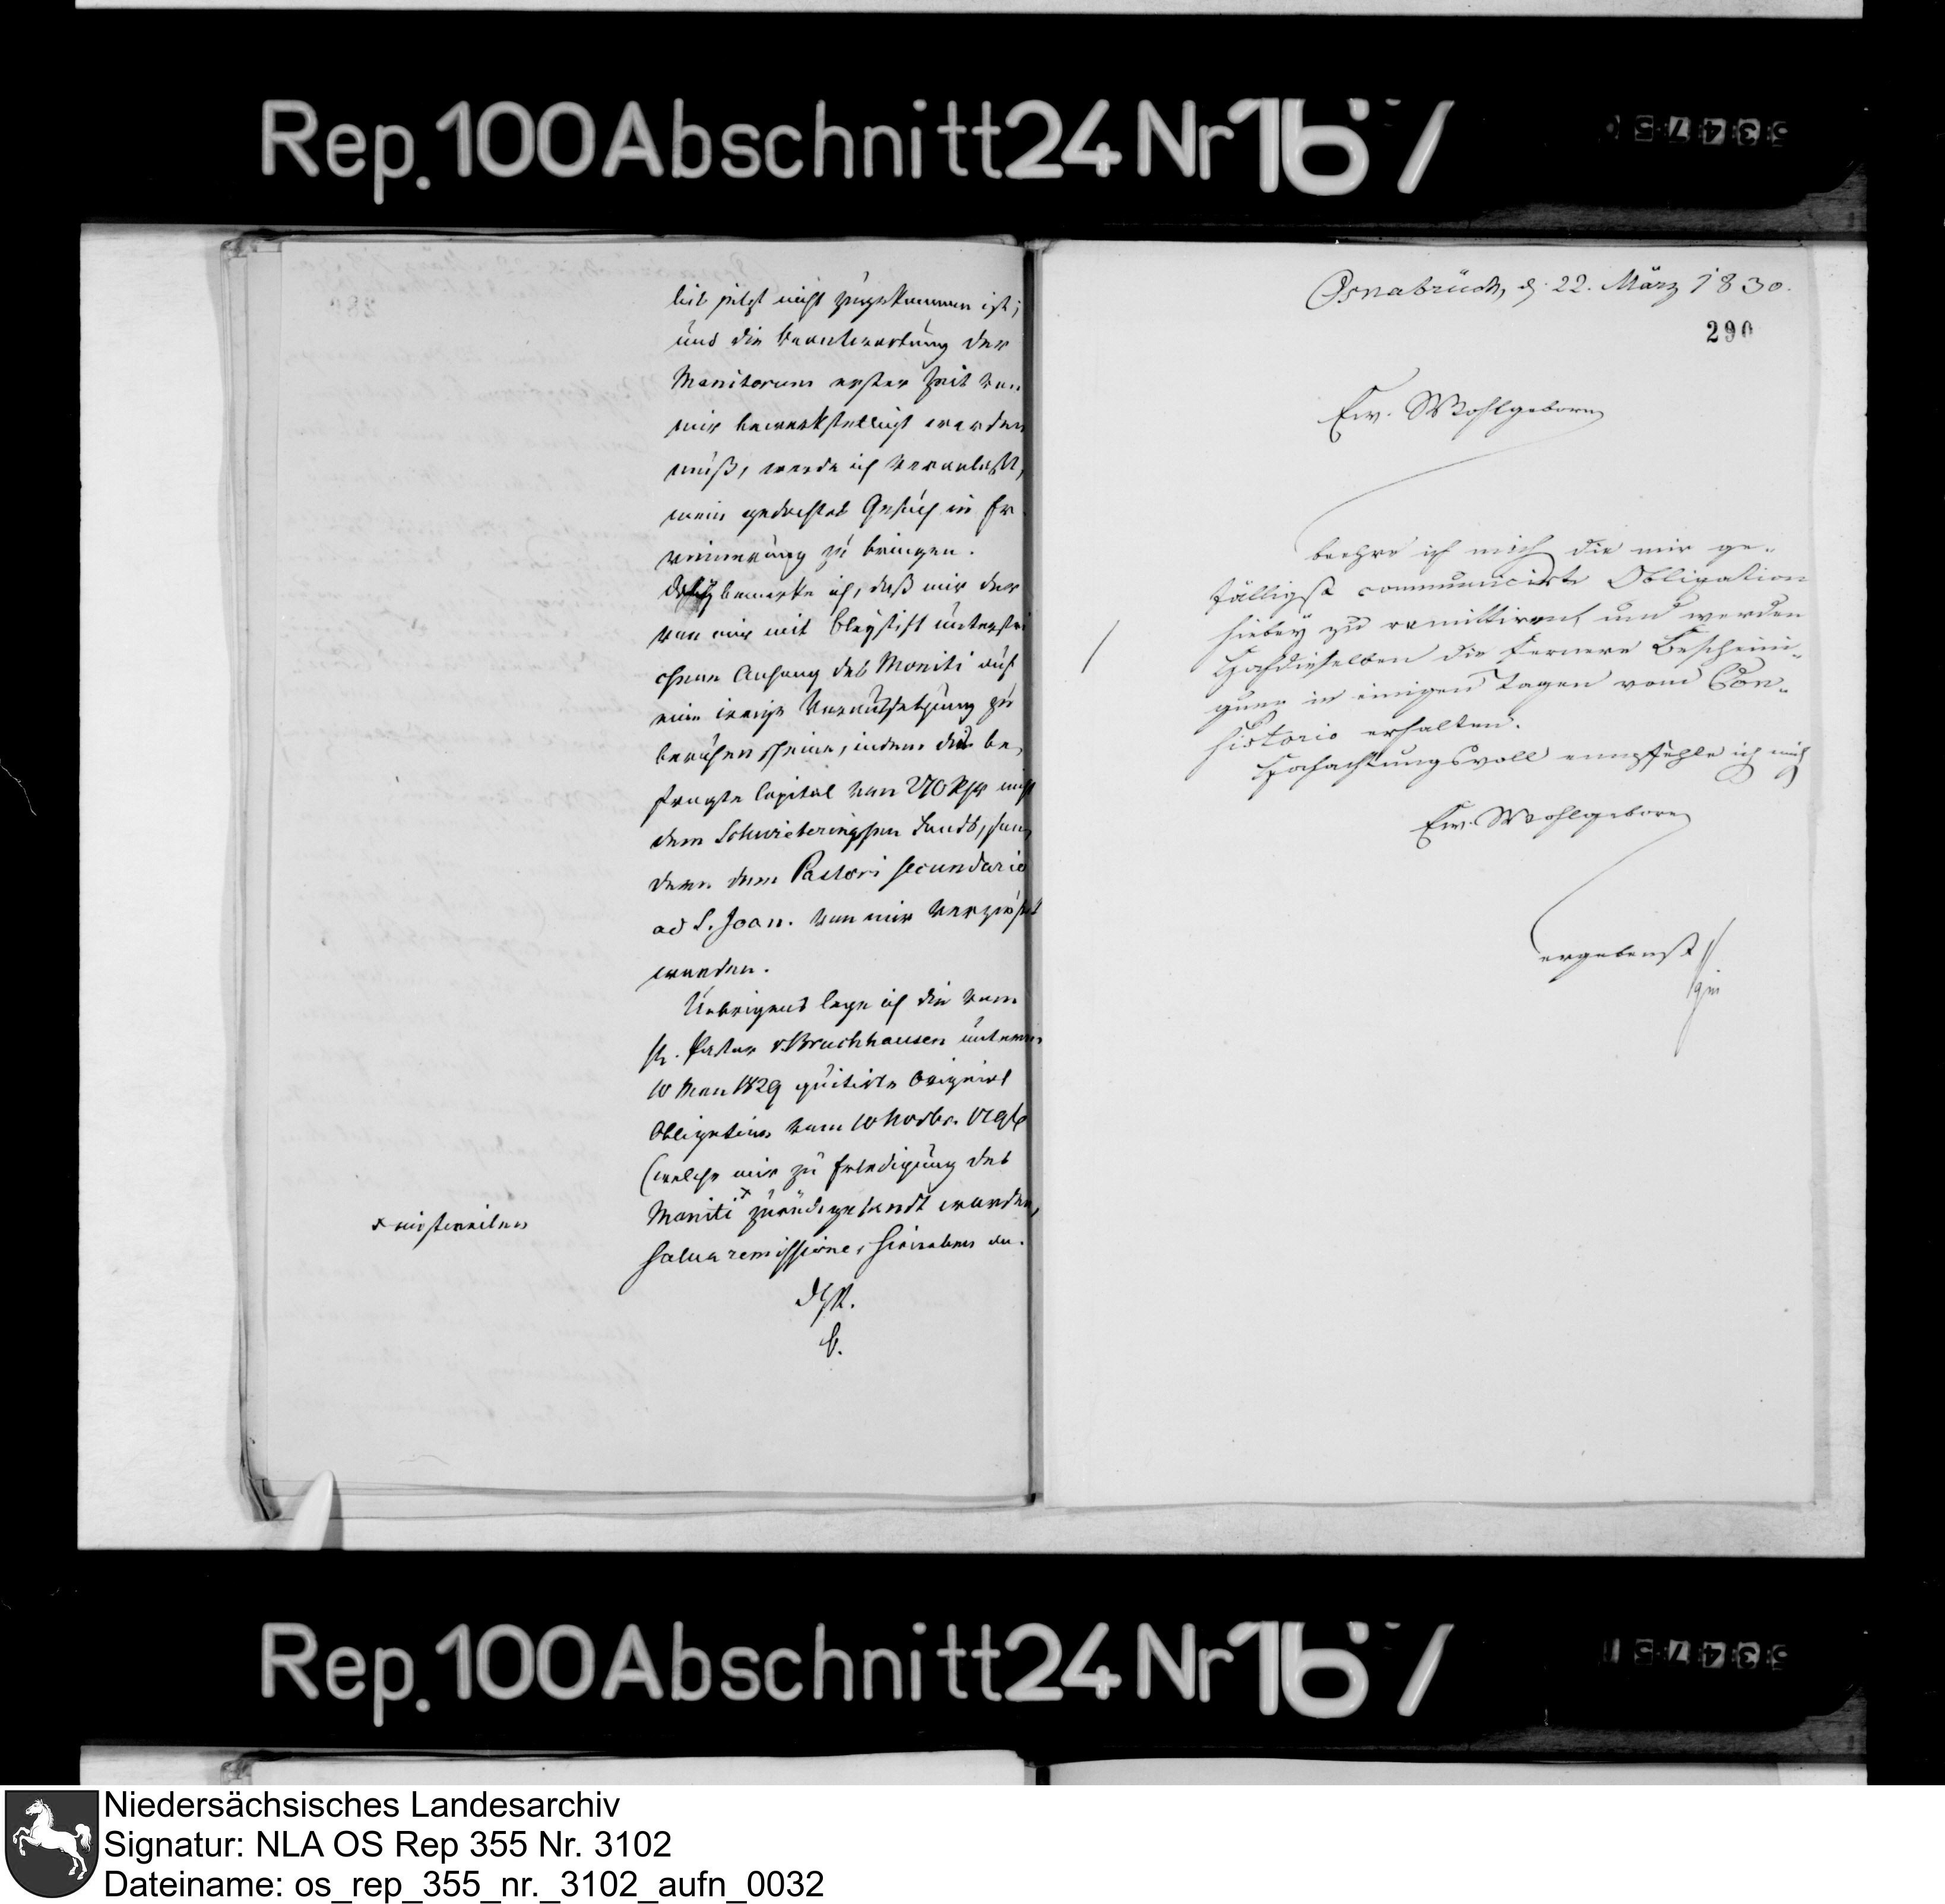 Rep. 100 Abschnitt 24 Nr 167
bis jetzt nicht zugekommen ist;
und die Beantwortung der
Monitorum erster Zeit von
mir bewerkstelligt werden
muß, werde ich veranlaßt,
mein gedachtes Gesuch in Er
innerung zu bringen.
bemerke ich, daß mir der
von mir mit Bleystift unterstri
chene Anfang des Moniti auf
eine irrige Voraussetzung zu
beruhen scheine, indem das be
fragte Capital von 270 Rthr nicht
dem Schwieteringschen Fundo, son
dern dem Pastori secundario
ad S. Joan. von mir verzinset
worden.
Uebrigens lege ich die vom
H. Pastor v. Bruchhausen unterm
10 Nov 1829 quitirte Original
Obligation vom 10 Novbr.
(welche mir zu Erledigung des
Moniti x zurückgesandt worden,
x einstweilen
salva remissione, hierneben an.
B.
Osnabrück, d. 22. März 1830.
290
Ew. Wohlgeborn
beehre ich mich die mir ge-
fälligst communicirte Obligation
hiebey zu remittiren, und werden
Hochdieselben die fernere Bescheini-
gung in einigen Tagen vom Con-
sistorio erhalten.
Hochachtungsvoll empfehle ich mich
Ew. Wohlgeborn
ergebenst
Rep. 100 Abschnitt 24 Nr 167
Niedersächsisches Landesarchiv
Signatur: NLA OS Rep 355 Nr. 3102
Dateiname: os_rep_355_nr._3102_aufn_0032